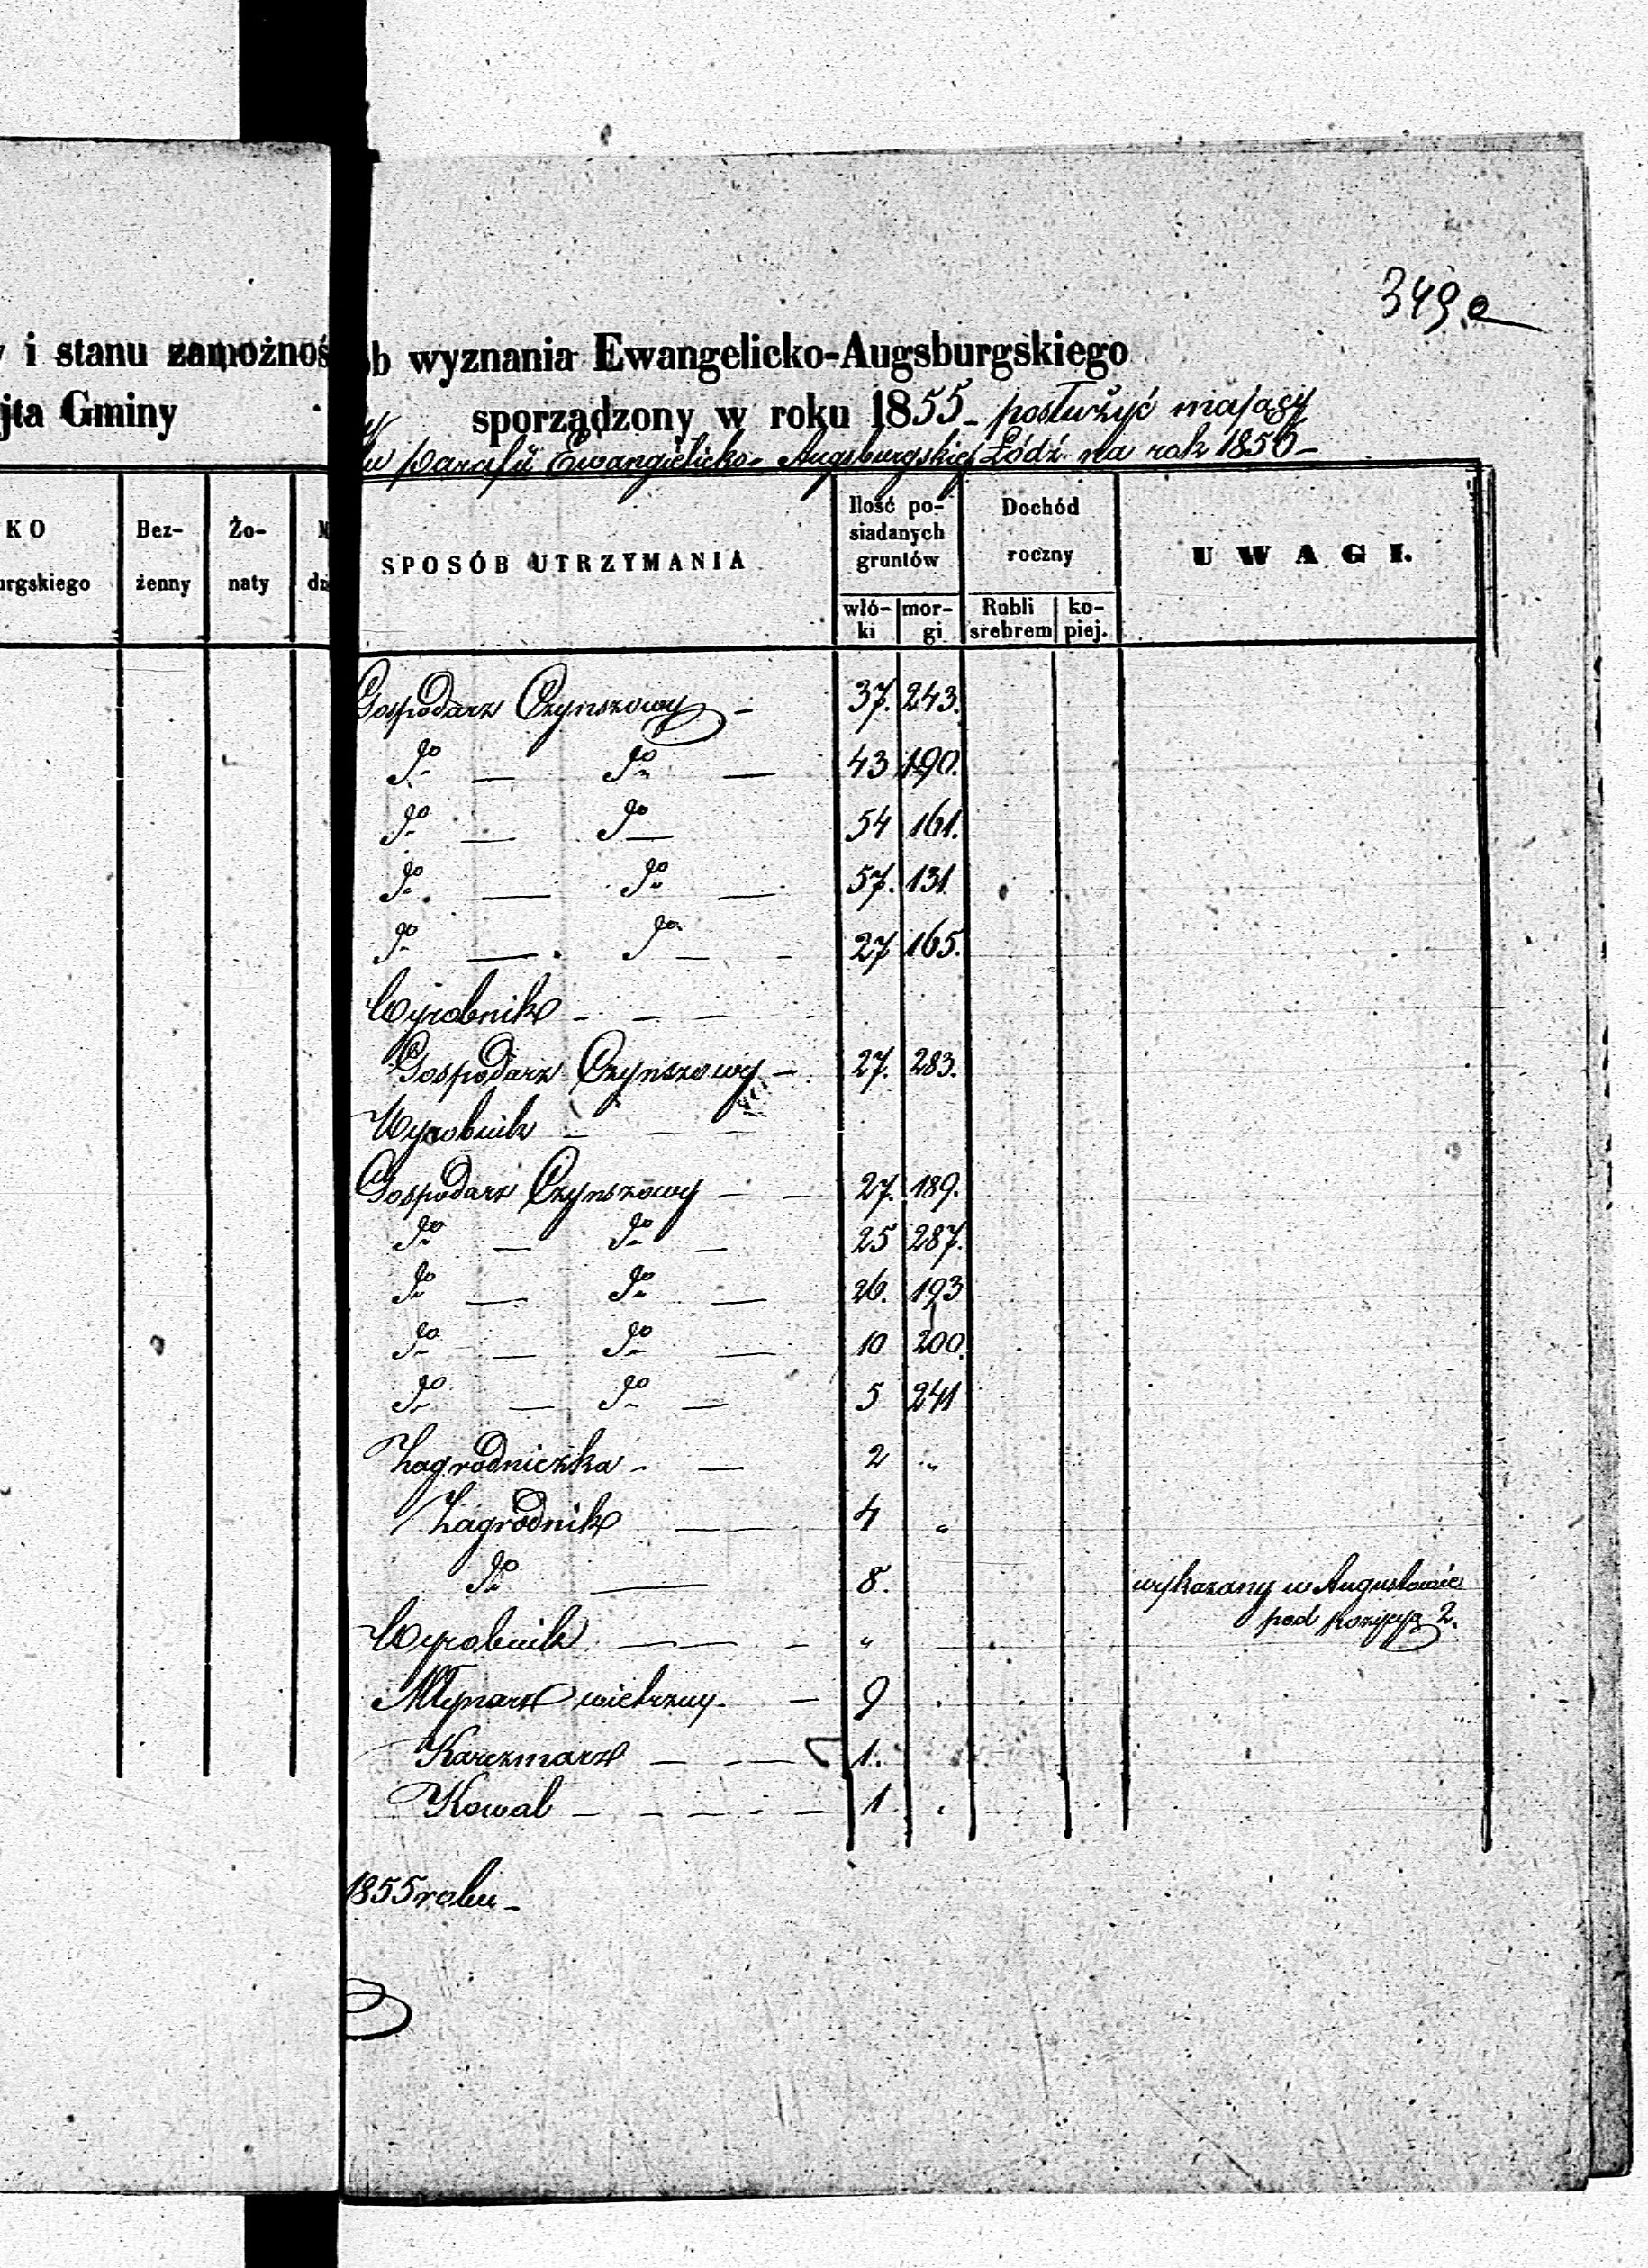 349.a
i stanu zamożnoś
jta Gminy
b wyznania Ewangelicko-Augsburgskiego
sporządzony w roku 1855 - posłużyć mający
Parafii Ewangielicko- Augsburgskiej Łódź na rok 1856 -
KO
urgskiego
Bez-
żenny
Żo-
naty
SPOSÓB UTRZYMANIA
Ilość po-
siadanych
gruntów
włó-
ki
mor-
gi
Dochód
roczny
Rubli
srebrem
ko-
piej.
UWAGI.
Gospodarz Czynszowy - 37. 243.
Do — Do — 43 190.
Do — Do — 54 161.
Do — Do — 57. 131
Do — Do — 27 165.
Wyrobnik - - -
Gospodarz Czynszowy - 27. 283.
Wyrobnik - - -
Gospodarz Czynszowy - - 27. 189.
Do — Do — 25 287.
Do — Do — 26. 193
Do — Do — 10 200.
Do — Do — 5 241
Zagrodniczka - — 2 "
Zagrodnik — — 4 "
Do — 8. wykazany w Augustowie
pod pozycyą 2.
Wyrobnik — — - "
Młynarz wietrzny - — 9
Karczmarz — — 1.
Kowal - - - - - 1
1855 roku -